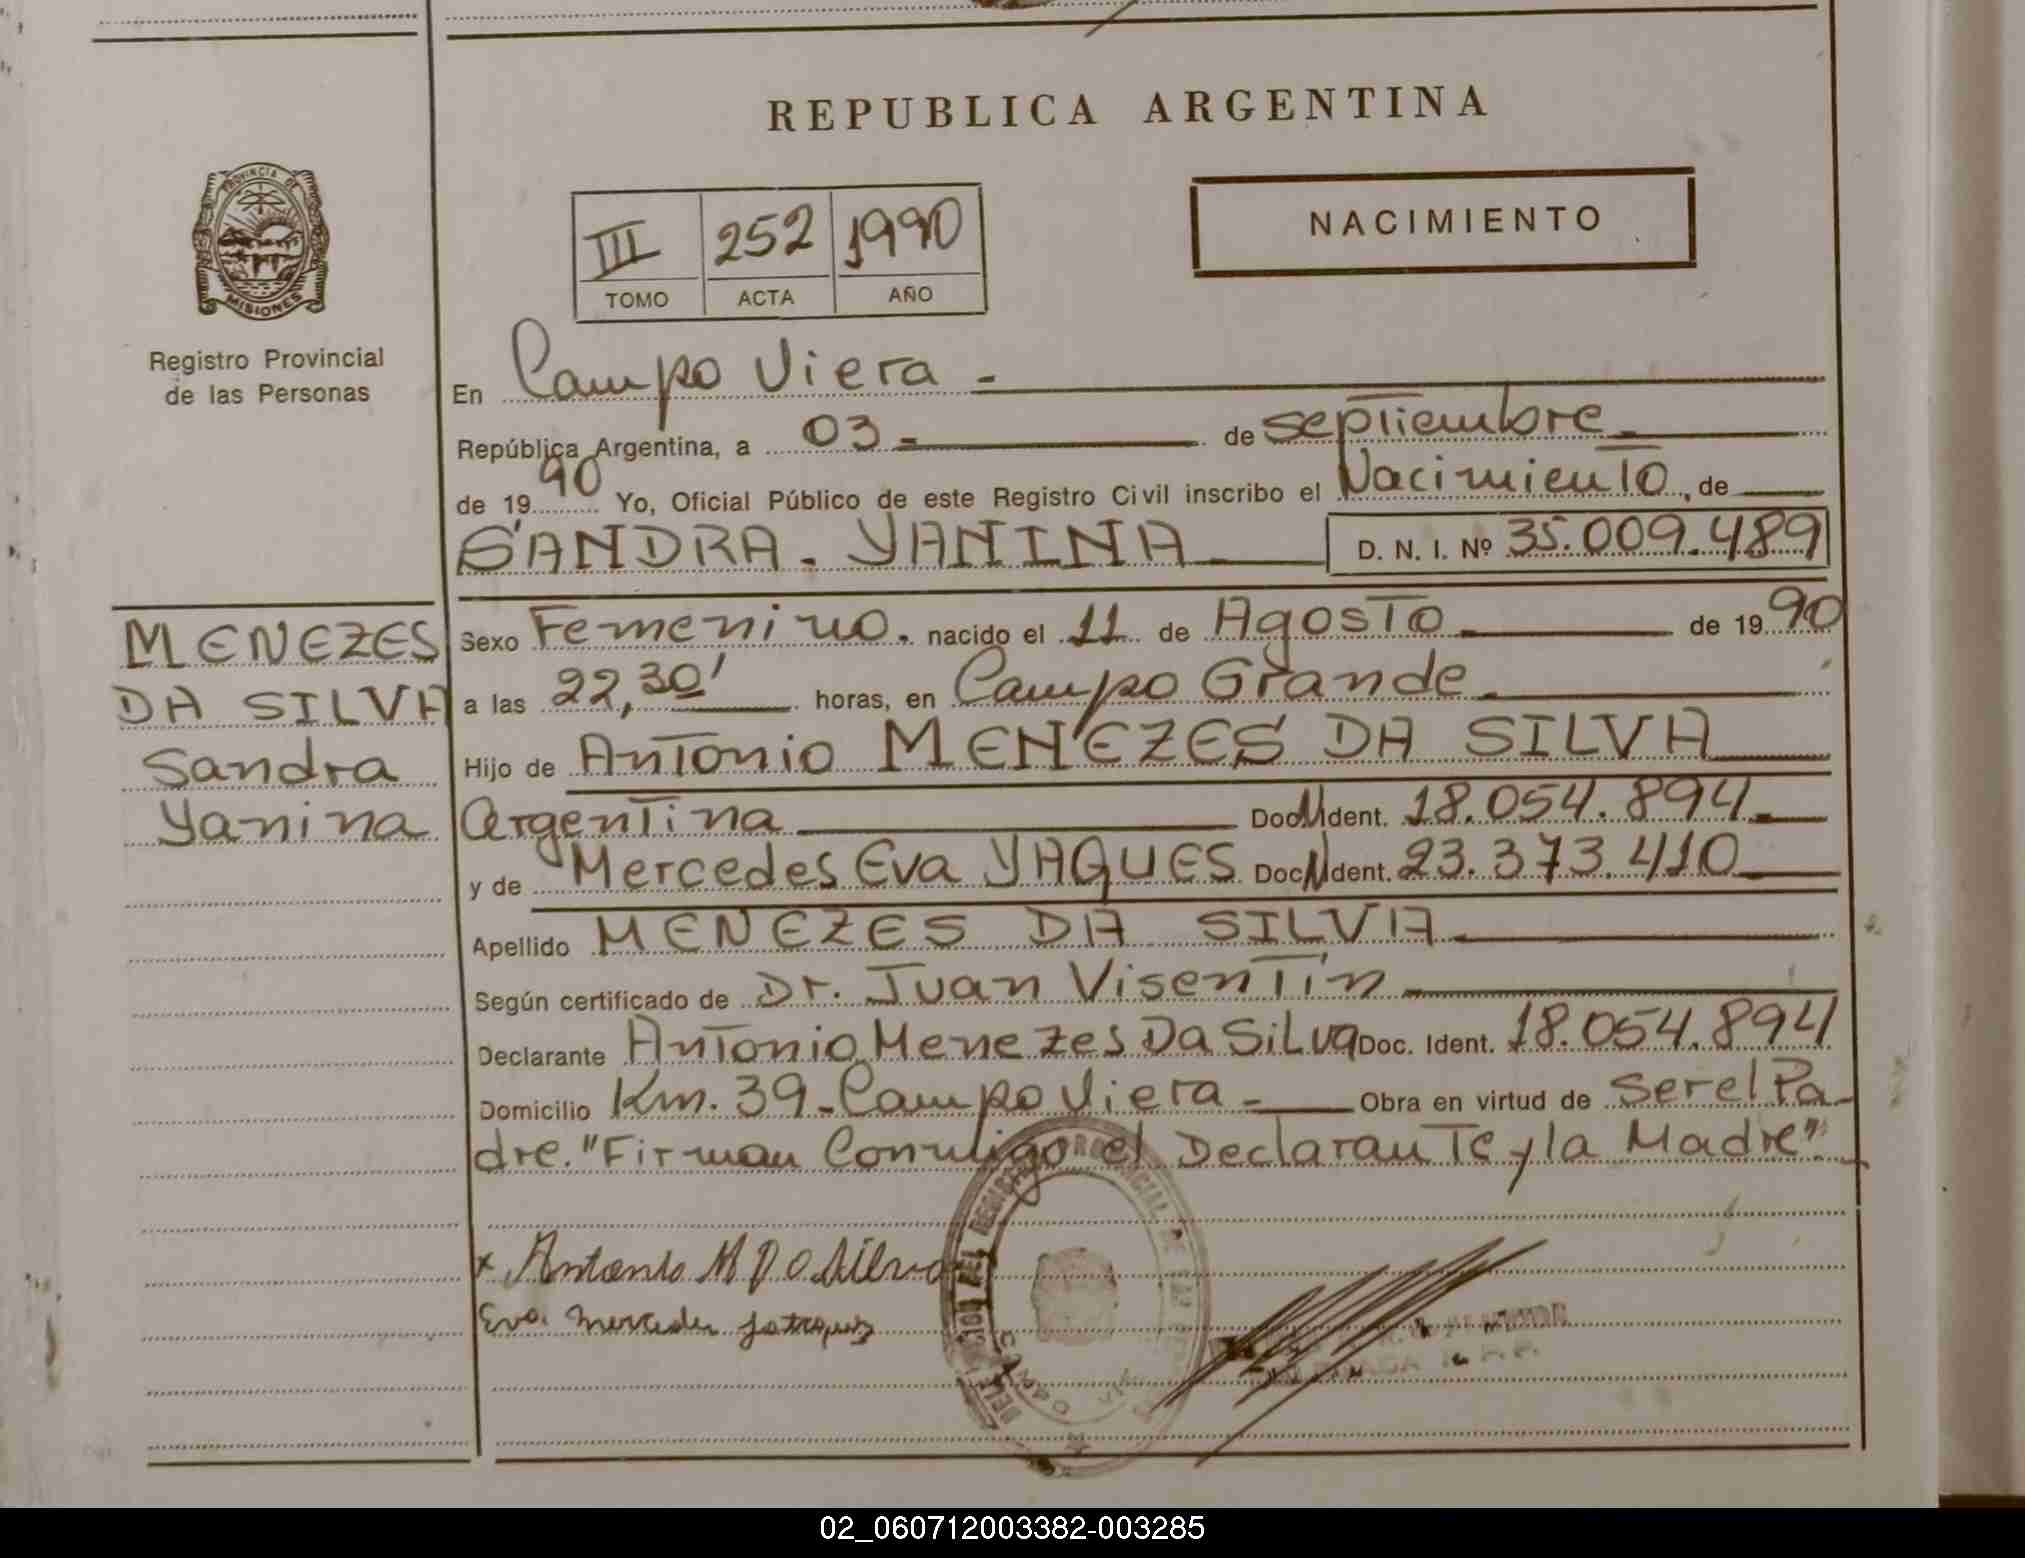 REPUBLICA ARGENTINA
PROVINCIA DE
MISIONES
Registro Provincial
de las Personas
III 252 1990
TOMO ACTA AÑO
NACIMIENTO
En Campo Viera -
República Argentina, a 03 - de septiembre
de 1990 Yo, Oficial Público de este Registro Civil inscribo el Nacimiento, de
SANDRA. YANINA D. N. I. Nº 35.009.489
MENEZES
DA SILVA
Sandra
Yanina
Sexo Femenino. nacido el 11 de Agosto de 1990
a las 22,30' horas, en Campo Grande
Hijo de Antonio MENEZES DA SILVA
Argentina Doc. Ident. 18.054.894
y de Mercedes Eva YAQUES Doc. Ident. 23.373.410
Apellido MENEZES DA SILVA
Según certificado de Dr. Juan Visentín
Declarante Antonio Menezes Da Silva Doc. Ident. 18.054.894
Domicilio Km. 39 - Campo Viera - Obra en virtud de Ser el Pa-
dre. "Firman Conmigo el Declarante y la Madre"
x Antonio M D A Silva
Eva Mercedes
CAMPO
02_060712003382-003285